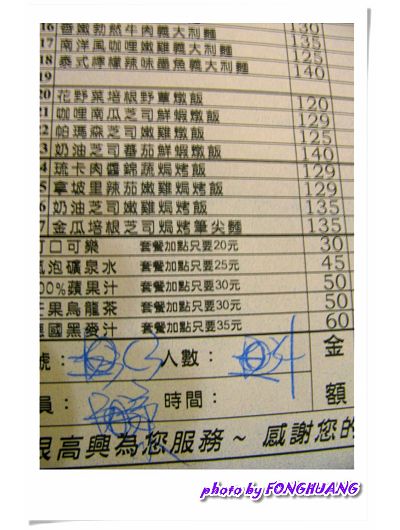 16 香嫩勃然牛肉義大利麵 130
17 南洋風咖哩嫩雞義大利麵 135
18 泰式檸檬辣味墨魚義大利麵 125
19 140
20 花野菜培根野蕈燉飯 120
21 咖哩南瓜芝司鮮蝦燉飯 129
22 帕瑪森芝司嫩雞燉飯 125
3 奶油芝司番茄鮮蝦燉飯 140
4 琉卡肉醬錦蔬焗烤飯 129
5 拿坡里辣茄嫩雞焗烤飯 129
6 奶油芝司嫩雞焗烤飯 135
7 金瓜培根芝司焗烤筆尖麵 135
可口可樂 套餐加點只要20元 30
氣泡礦泉水 套餐加點只要25元 45
100%蘋果汁 套餐加點只要30元 50
芒果烏龍茶 套餐加點只要30元 50
德國黑麥汁 套餐加點只要35元 60
號： 人數： 金
員： 時間： 額
很高興為您服務~ 感謝您的
photo by FONGHUANG